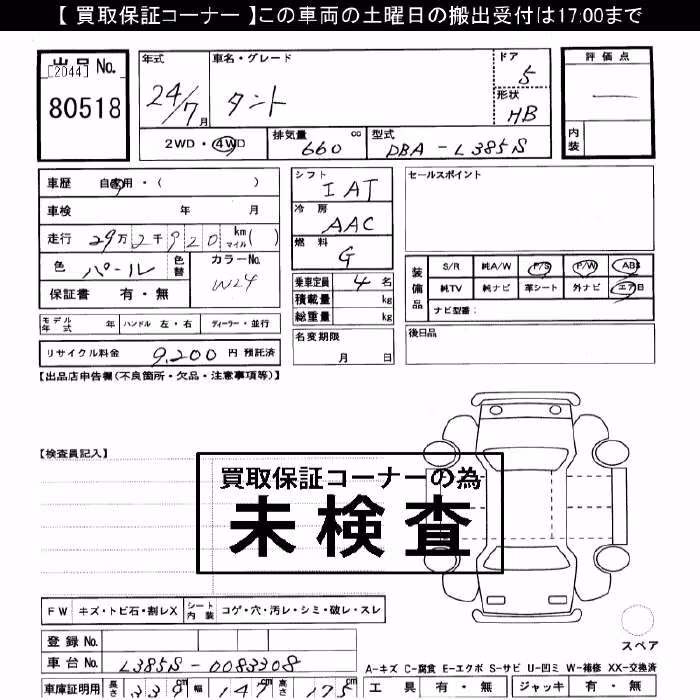 【 買取保証コーナー 】この車両の土曜日の搬出受付は17:00まで
出品 No.
[2044]
80518
年式
24/7月
車名・グレード
タント
ドア
5
形状
HB
評価点
—
内装
2WD・4WD
排気量 cc
660
型式
DBA-L385S
車歴 自家用・( )
車検 年 月
走行 29万2千920 km マイル( )
色 パール 色替
カラーNo.
W24
保証書 有・無
シフト
IAT
冷房
AAC
燃料
G
乗車定員 4名
積載量 kg
総重量 kg
セールスポイント
装備品
S/R 純A/W P/S P/W ABS
純TV 純ナビ 革シート 外ナビ エアB
ナビ型番:
モデル年式 年 ハンドル 左・右 ディーラー・並行
名変期限
月 日
後日品
リサイクル料金 9,200 円 預託済
【出品店申告欄(不良箇所・欠品・注意事項等)】
【検査員記入】
買取保証コーナーの為
未検査
FW キズ・トビ石・割レX シート内装 コゲ・穴・汚レ・シミ・破レ・スレ
スペア
登録 No.
車台 No. L385S-0083308
A-キズ C-腐食 E-エクボ S-サビ U-凹ミ W-補修 XX-交換済
車庫証明用 長さ 339cm 幅 147cm 高さ 175cm
工具 有・無 ジャッキ 有・無